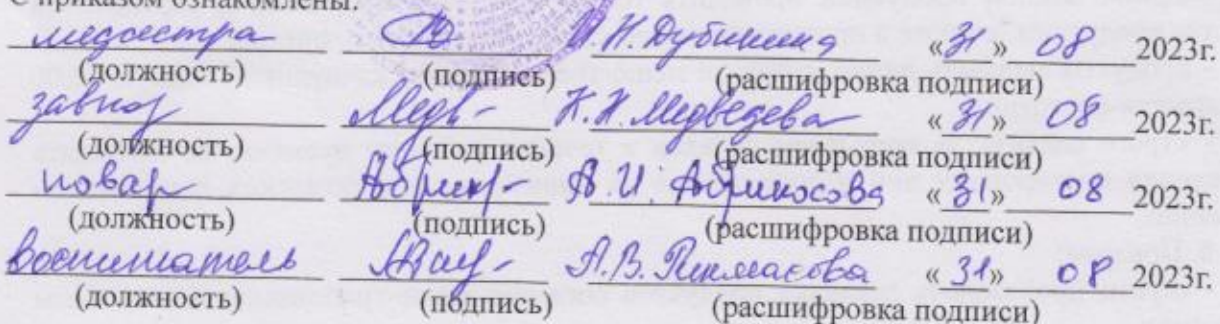 С приказом ознакомлены.
медсестра И.Н. Дубинина «31» 08 2023г.
(должность) (подпись) (расшифровка подписи)
завхоз Медв- Н.Н. Медведева «31» 08 2023г.
(должность) (подпись) (расшифровка подписи)
повар Абрик- А.И. Абрикосова «31» 08 2023г.
(должность) (подпись) (расшифровка подписи)
воспитатель А.В. «31» 08 2023г.
(должность) (подпись) (расшифровка подписи)